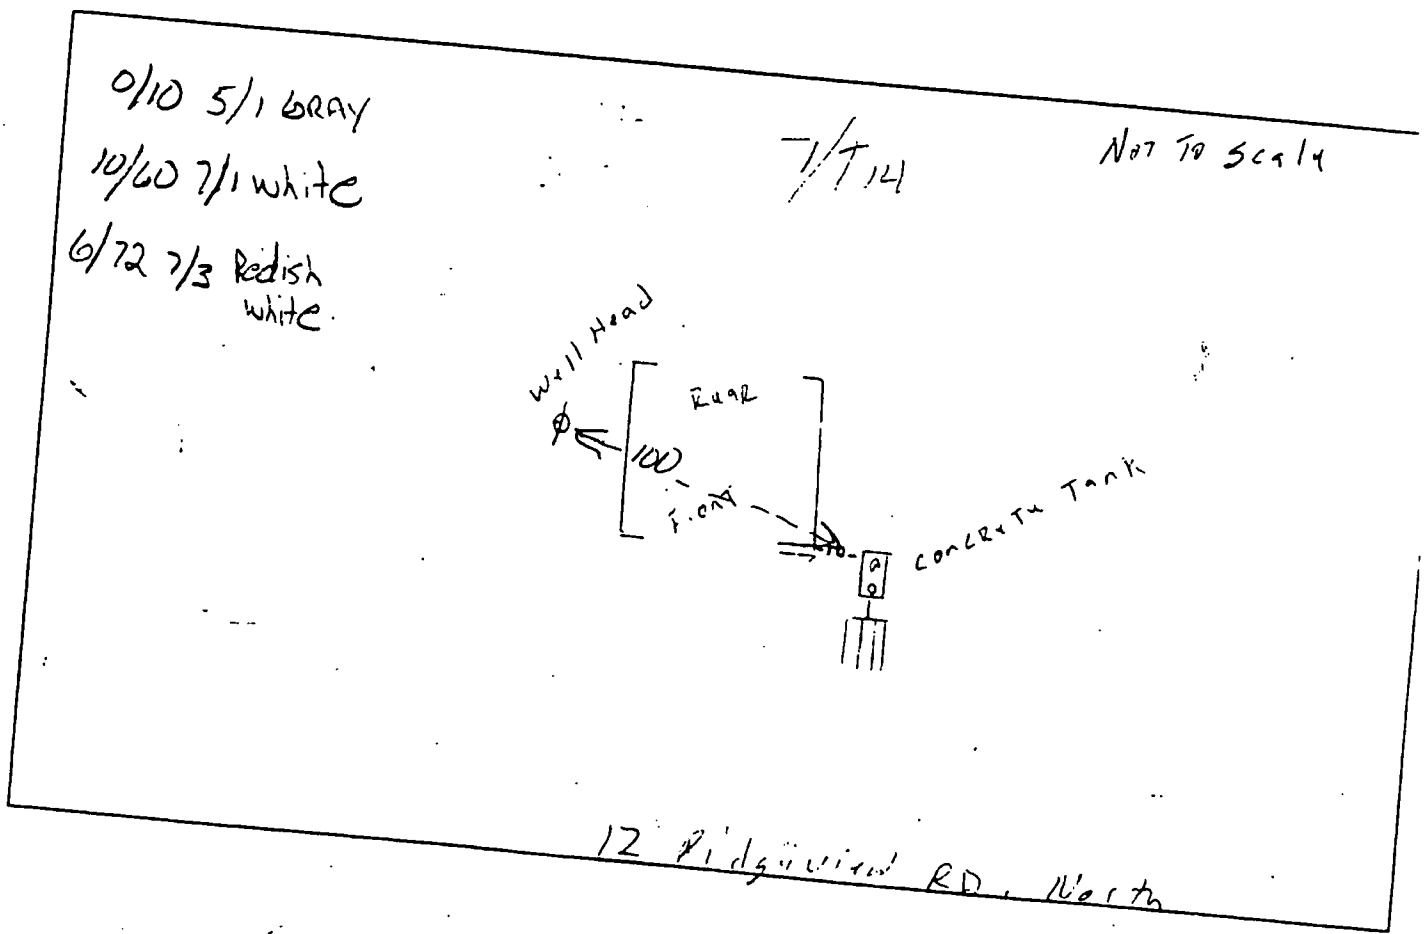 0/10 5/1 GRAY
10/60 7/1 white
6/72 7/3 Redish
white.
Not To Scale
Well Head
Rear
100
Front
Concrete Tank
12 Ridgeview RD. North